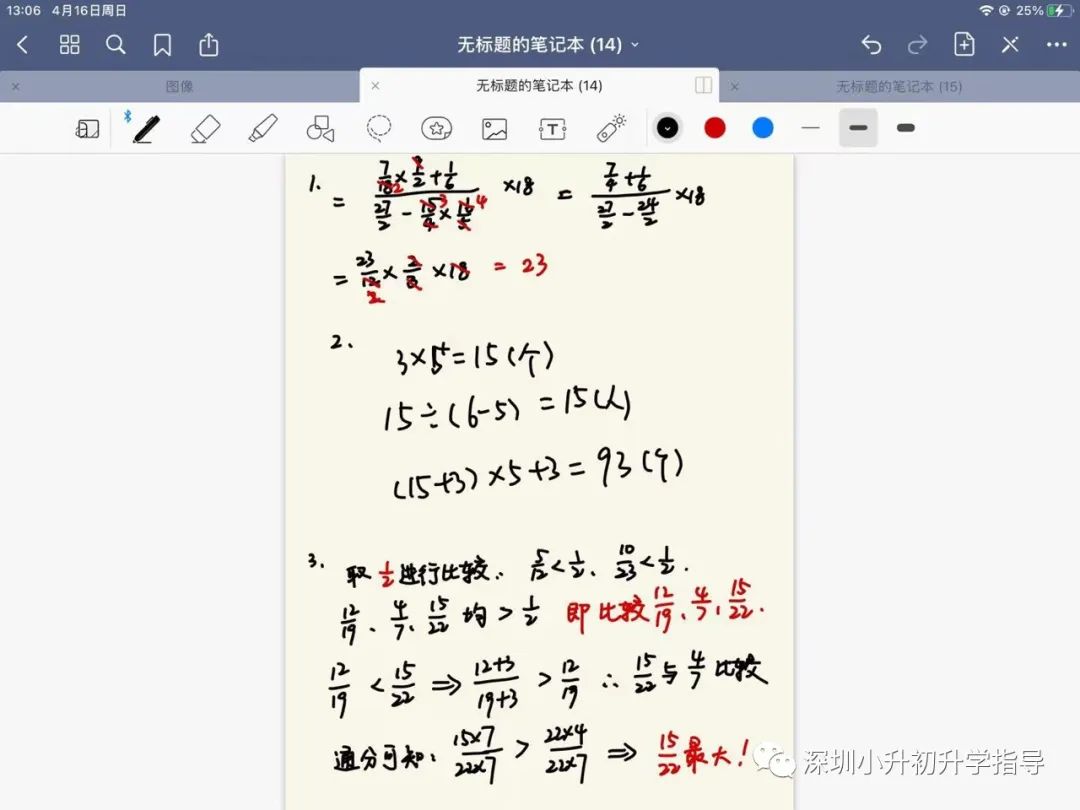 13:06 4月16日周日 25%
无标题的笔记本 (14)
图像 无标题的笔记本 (14) 无标题的笔记本 (15)
1. = (7/18 × 9/2 + 1/6)/(27/2 - 15/4 × 16/5) ×18 = (7/4 + 1/6)/(27/2 - 24/2) ×18
= 23/12 × 2/3 ×18 = 23
2.
3×5=15(个)
15÷(6-5) = 15(人)
(15+3)×5+3=93(个)
3. 取 1/2 进行比较, 5/12 < 1/2、10/23 < 1/2.
12/19、4/7、15/22 均 > 1/2 即比较 12/19、4/7、15/22.
12/19 < 15/22 ⇒ (12+3)/(19+3) > 12/19 ∴ 15/22 与 4/7 比较
通分可知: (15×7)/(22×7) > (22×4)/(22×7) ⇒ 15/22 最大!
深圳小升初升学指导